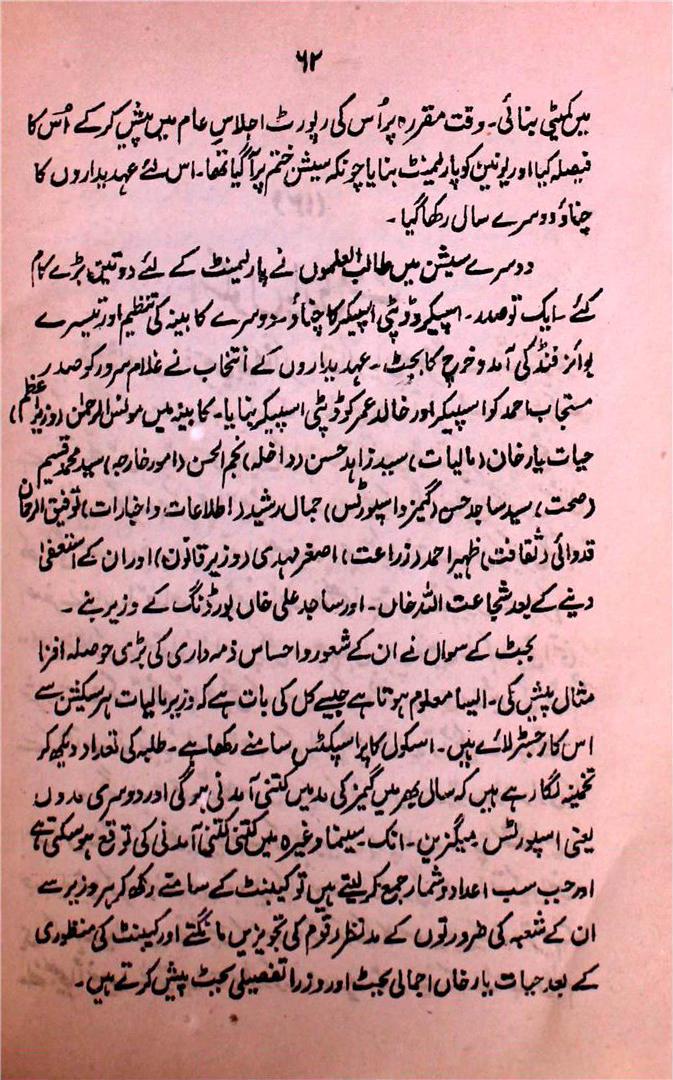 ۶۲
میں کمیٹی بنائی۔ وقت مقررہ پر اُس کی رپورٹ اجلاسِ عام میں پیش کر کے اُس کا
فیصلہ کیا اور یونین کو پارلیمنٹ بنایا چونکہ سیشن ختم پر آ گیا تھا۔ اس لئے عہدیداروں کا
چناؤ دوسرے سال رکھا گیا۔
دوسرے سیشن میں طالب العلموں نے پارلیمنٹ کے لئے دو تین بڑے کام
کئے۔ ایک تو صدر۔ اسپیکر و ڈپٹی اسپیکر کا چناؤ۔ دوسرے کابینہ کی تنظیم اور تیسرے
بوائز فنڈ کی آمد و خرچ کا بجٹ۔ عہدیداروں کے انتخاب نے غلام سرور کو صدر
مستجاب احمد کو اسپیکر اور خالد عمر کو ڈپٹی اسپیکر بنایا۔ کابینہ میں مونس الرحمٰن (وزیر اعظم)
حیات یار خان (مالیات) سید زاہد حسن (داخلہ) نجم الحسن (امور خارجہ) سید محمد قسیم
(صحت) سید ساجد حسن (گیمز و اسپورٹس) جمال رشید (اطلاعات و اخبارات) توفیق الرحمان
قدوائی (ثقافت) ظہیر احمد (زراعت) اصغر مہدی (وزیر قانون) اور ان کے استعفیٰ
دینے کے بعد شجاعت اللہ خاں۔ اور ساجد علی خاں بورڈنگ کے وزیر بنے۔
بجٹ کے سوال نے ان کے شعور و احساس ذمہ داری کی بڑی حوصلہ افزا
مثال پیش کی۔ ایسا معلوم ہوتا ہے جیسے کل کی بات ہے کہ وزیر مالیات ہر سیکشن سے
اس کا رجسٹر لائے ہیں۔ اسکول کا پراسپکٹس سامنے رکھا ہے۔ طلبہ کی تعداد دیکھ کر
تخمینہ لگا رہے ہیں کہ سال بھر میں گیمز کی مد میں کتنی آمدنی ہو گی اور دوسری مدوں
یعنی اسپورٹس میگزین۔ انک۔ سینما وغیرہ میں کتنی کتنی آمدنی کی توقع ہو سکتی ہے
اور جب سب اعداد و شمار جمع کر لیتے ہیں تو کیبنٹ کے سامنے رکھ کر ہر وزیر سے
ان کے شعبہ کی ضرورتوں کے مدنظر رقوم کی تجویزیں مانگتے اور کیبنٹ کی منظوری
کے بعد حیات یار خاں اجمالی بجٹ اور وزرا تفصیلی بجٹ پیش کرتے ہیں۔